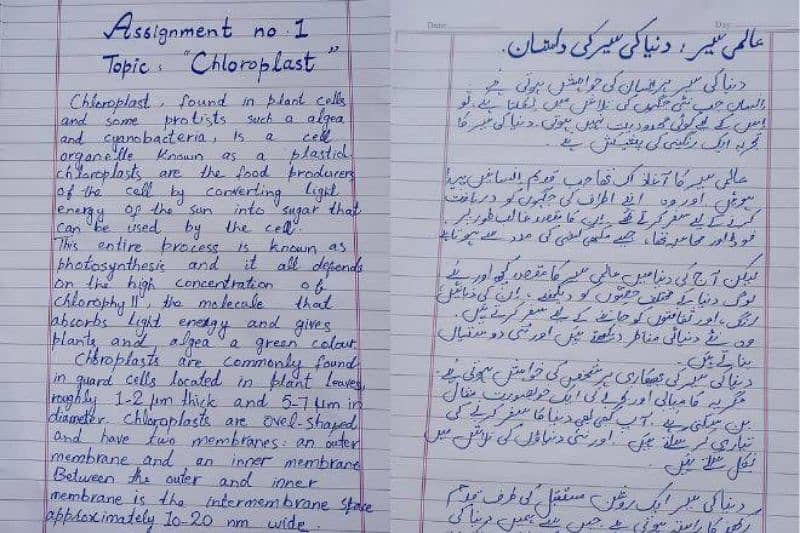 Assignment no. 1
Topic: "Chloroplast"
Chloroplast, found in plant cells
and some protists such a algea
and cyanobacteria, Is a cell
organelle known as a plastid.
chloroplasts are the food producers
of the cell by converting light
energy of the sun into sugar that
can be used by the cell.
This entire process is known as
photosynthesis and it all depends
on the high concentration of
chlorophyll, the molecule that
absorbs light energy and gives
plants and algea a green colour.
Chloroplasts are commonly found
in guard cells located in plant leaves,
roughly 1-2 µm thick and 5-7 µm in
diameter. Chloroplasts are ovel-shaped
and have two membranes: an outer
membrane and an inner membrane
Between the outer and inner
membrane is the intermembrane space
approximately 10-20 nm wide.
Date:
Day:
عالمی سیر: دنیا کی سیر کی داستان.
دنیا کی سیر ہر انسان کی خواہش ہوتی ہے.
انسان جب نئی جگہوں کی تلاش میں نکلتا ہے، تو
اس کے لیے کوئی محدودیت نہیں ہوتی. دنیا کی سیر کا
تجربہ ایک رنگین کی
عالمی سیر کا آغاز جب قدیم انسانیں پیدا
ہوئیں اور وہ اپنے اطراف کی جگہوں کو دریافت
کرنے کے لیے سفر کرتے تھے. اس کا مقصد غالب طور پر
کی مدد سے ہوتا
لیکن آج کی دنیا میں عالمی سیر کا مقصد کچھ اور ہے
لوگ دنیا کے مختلف حصوں کو دیکھنے، ان کی
اور ثقافتوں کو جاننے کے لیے سفر کرتے ہیں.
وہ نئے دنیائی مناظر دیکھتے ہیں اور نئی دوستیاں
بناتے ہیں.
دنیا کی سیر کی ہر شخص کی خواہش ہوتی ہے.
مگر یہ کامیابی اور کی ایک خوبصورت مثال
بن سکتی ہے. آپ بھی دنیا کا سفر کرنے کی
تیاری کر سکتے ہیں. اور نئی دنیاؤں کی تلاش میں
نکل سکتے ہیں.
دنیا کی سیر ایک روشن مستقبل کی طرف قدم
رکھنے کا راستہ ہوتی ہے جس میں ہمیں دنیا کی